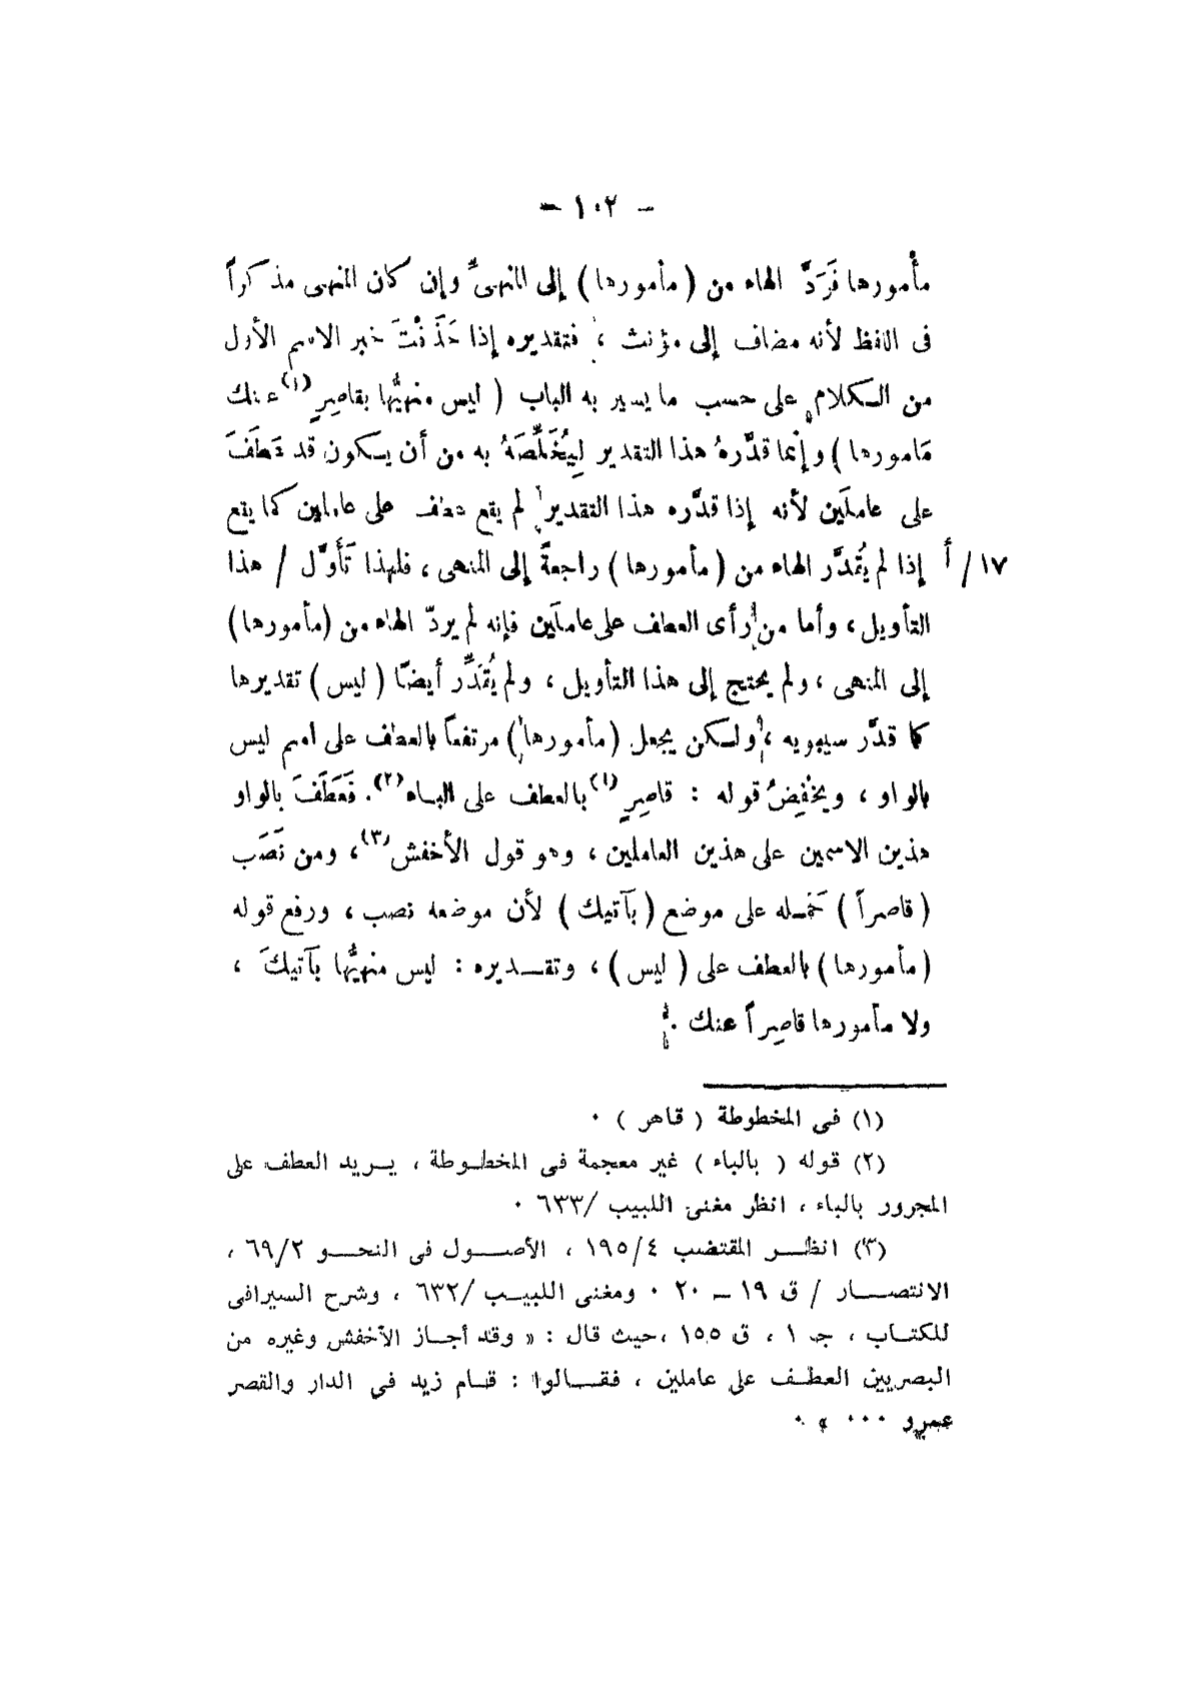 — ١٠٢ —
مأْمورها فَرَدَّ الهاء من (مأمورها) إلى المنهىِّ وإن كان المنهى مذكراً
فى اللفظ لأنه مضاف إلى مؤنث ، فتقديره إذا حَذَفْتَ خبر الاسم الأول
من الكلام على حسب ما يسير به الباب ( ليس منهيُّها بقاصِرٍ(١) عنك
مَامورها ) وإنما قدَّرهُ هذا التقدير لِيُخَلِّصَهُ به من أن يكون قد عَطَفَ
على عاملَين لأنه إذا قدَّره هذا التقدير لم يقع عطف على عاملين كما يقع
١٧/أ إذا لم يُقدَّر الهاء من (مأمورها) راجعةً إلى المنهى ، فلهذا تَأَوَّل / هذا
التأويل ، وأما من رأى العطف على عاملَين فإنه لم يردّ الهاء من (مأمورها)
إلى المنهى ، ولم يحتج إلى هذا التأويل ، ولم يُقَدِّر أيضًا ( ليس ) تقديرها
كما قدَّر سيبويه ، ولكن يجعل (مأمورها) مرتفعاً بالعطف على اسم ليس
بالواو ، ويخْفِضُ قوله : قاصِرٍ(١) بالعطف على الباء(٢). فَعَطَفَ بالواو
هذين الاسمين على هذين العاملين ، وهو قول الأخفش(٣)، ومن نَصَب
( قاصراً ) حَمَله على موضع (بآتيك ) لأن موضعه نصب ، ورفع قوله
(مأمورها) بالعطف على ( ليس ) ، وتقـــديره : ليس منهيُّها بآتيكَ ،
ولا مأمورها قاصِراً عنك .
(١) فى المخطوطة ( قاهر ) .
(٢) قوله ( بالباء ) غير معجمة فى المخطـوطة ، يـريد العطف على
المجرور بالباء ، انظر مغنى اللبيب /٦٣٣ .
(٣) انظـــر المقتضب ١٩٥/٤ ، الأصـــول فى النحـــو ٦٩/٢ ،
الانتصـــار / ق ١٩ — ٢٠ . ومغنى اللبيــب /٦٣٢ ، وشرح السيرافى
للكتــاب ، جـ ١ ، ق ١٥٥ ،حيث قال : « وقد أجــاز الأخفش وغيره من
البصريين العطــف على عاملين ، فقـــالوا : قــام زيد فى الدار والقصر
عمرو ... » .